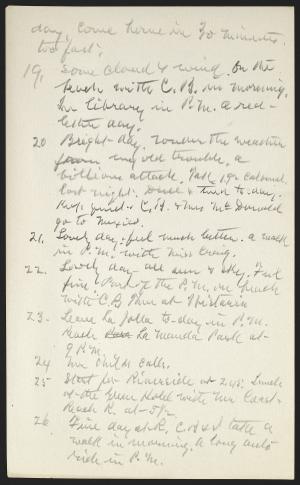 day, come home in 30 minutes.
too fast.
19, Some cloud & wind. On the
beach with C.B. in morning,
in library in P.M. a red-
letter day.
20 Bright day, under the weather
from my old trouble, a
billious attack. Took 1 gr calomel
last night. Dined & tired to-day.
C.B. & Mrs McDonald
go to Mexico.
21. Lovely day. feel much better. a walk
in P.M. with Miss Craig.
22. Lovely day - all sun & sky. Feel
fine. Part of the P.M. on beach
with C.B. then at Wistaria
23 - Leave La Jolla to-day in P.M.
Reach La Manda Park at
9 P.M.
24 Mr Childs calls.
25 Start for Riverside at 2.45. Lunch
at the Glen Hotel with Mr
Reach R. at 5 P.M.
26 Fine day at R. C.B. & I take a
walk in morning, a long auto
ride in P.M.